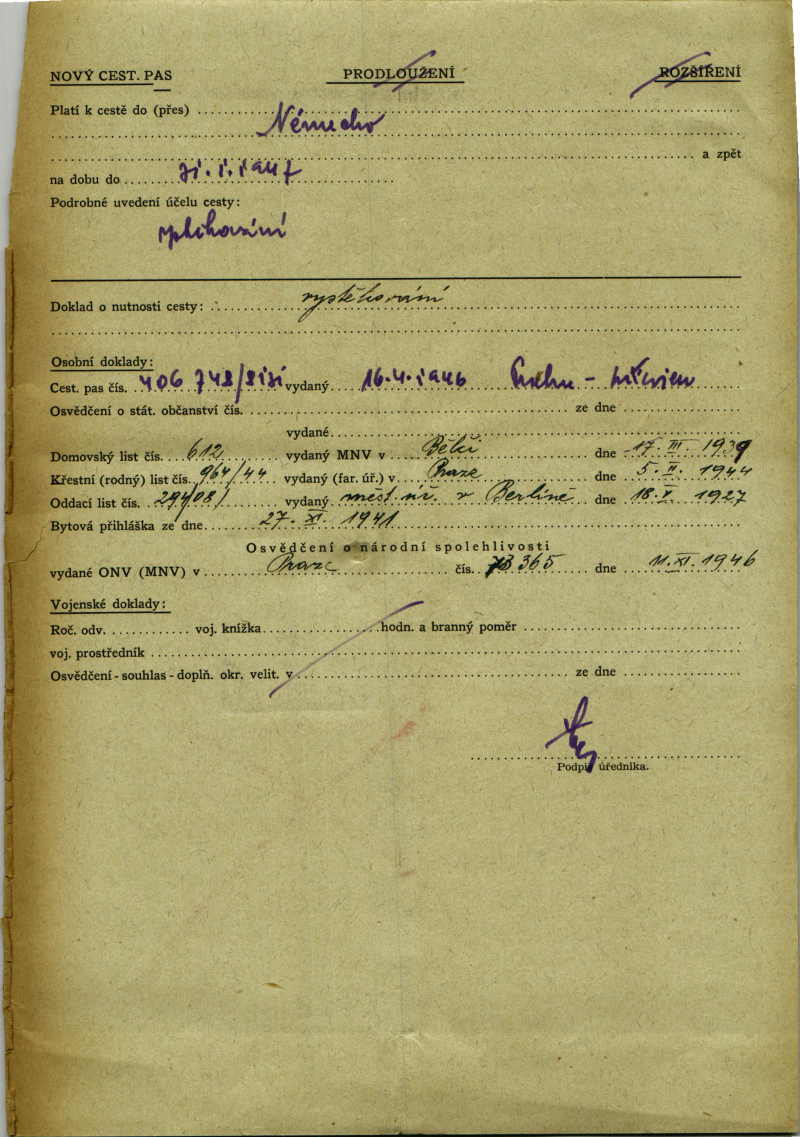 NOVÝ CEST. PAS PRODLOUŽENÍ ROZŠÍŘENÍ
Platí k cestě do (přes)
Německo
a zpět
na dobu do 31. 1. 1947
Podrobné uvedení účelu cesty:
Doklad o nutnosti cesty: vystěhování
Osobní doklady:
Cest. pas čís. vydaný 16. 4. 1946
Osvědčení o stát. občanství čís. ze dne
vydané
Domovský list čís. 612 vydaný MNV v dne 17. III. 1939
Křestní (rodný) list čís. 964/44 vydaný (far. úř.) v Praze dne 5. II. 1944
Oddací list čís. vydaný měst. úř. v Berlíně dne 18. V. 1927
Bytová přihláška ze dne 27. XI. 1941
Osvědčení o národní spolehlivosti
vydané ONV (MNV) v Praze čís. 365 dne 11. XI. 1946
Vojenské doklady:
Roč. odv. voj. knížka hodn. a branný poměr
voj. prostředník
Osvědčení - souhlas - doplň. okr. velit. v ze dne
Podpis úředníka.